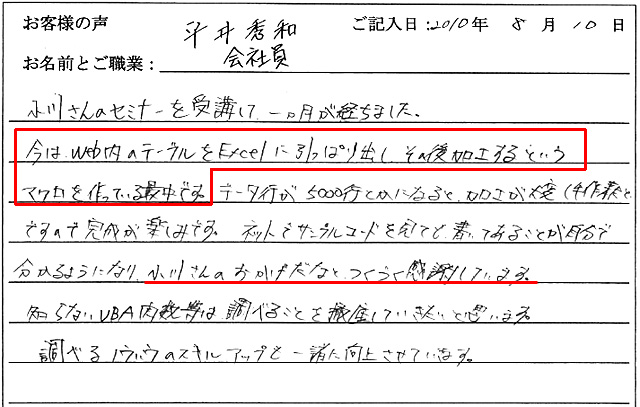 お客様の声 平井秀和 ご記入日:2010年 8月 10日
お名前とご職業: 会社員
小川さんのセミナーを受講して、一ヵ月が経ちました。
今は、Web内のテーブルをExcelに引っぱり出し、その後加工するという
マクロを作っている最中です。データ行が5000行とかになると、加工が大変(手作業だと)
ですので完成が楽しみです。ネットでサンプルコードを見ても、書いてあることが自分で
分かるようになり、小川さんのおかげだなと、つくづく感謝しています。
知らないVBA関数等は調べることを徹底していきたいと思います。
調べるノウハウのスキルアップも一緒に向上させています。